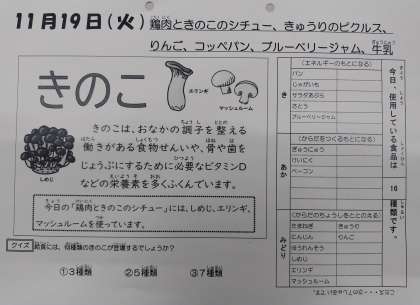 11月19日（火）鶏肉ときのこのシチュー、きゅうりのピクルス、
りんご、コッペパン、ブルーベリージャム、牛乳
きのこ
エリンギ
マッシュルーム
しめじ
きのこは、おなかの調子を整える
働きがある食物せんいや、骨や歯を
じょうぶにするために必要なビタミンD
などの栄養素を多くふくんでいます。
今日の「鶏肉ときのこのシチュー」には、しめじ、エリンギ、
マッシュルームを使っています。
クイズ 給食には、何種類のきのこが登場するでしょうか？
①3種類 ②5種類 ③7種類
今日、使用している食品は 16 種類です。
き
（エネルギーのもとになる）
パン
じゃがいも
サラダあぶら
さとう
ブルーベリージャム
あか
（からだをつくるもとになる）
ぎゅうにゅう
けいにく
ベーコン
みどり
（からだのちょうしをととのえる）
たまねぎ きゅうり
にんじん りんご
ほうれんそう
しめじ
エリンギ
マッシュルーム